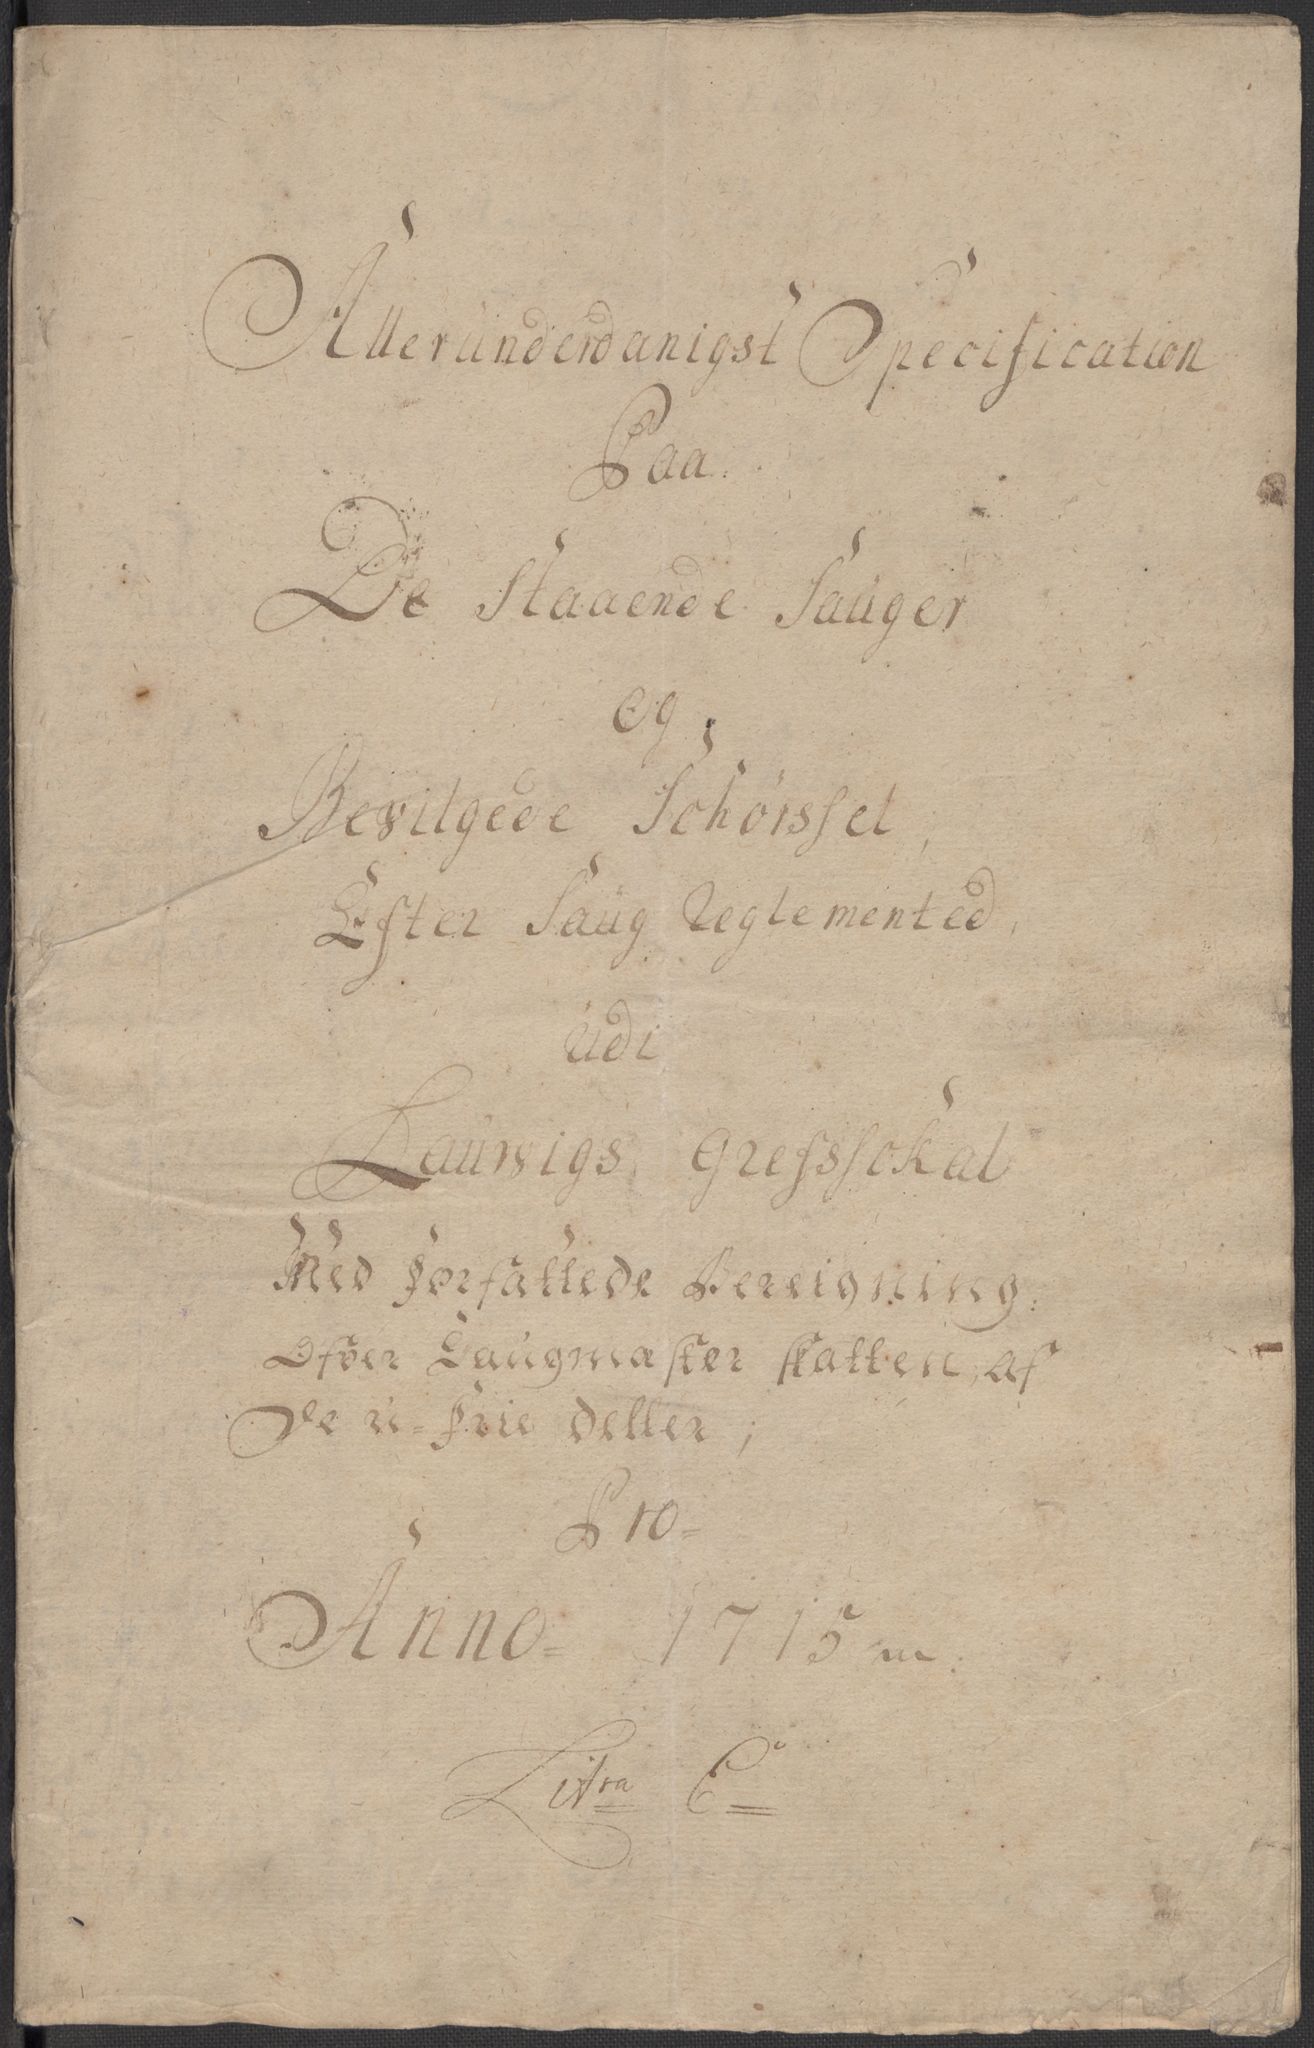 Allerunderdanigst Specification
Paa
De Staaende Sauger
Og
Bevilgede Schørssel,
Efter Saug Reglemented,
udi
Laurvigs Grefsskal
Med forfattede Bereigning
Ofver Saugmæster skatten, af
De u-frie deller;
Pro=
Anno= 1715
Litra C=